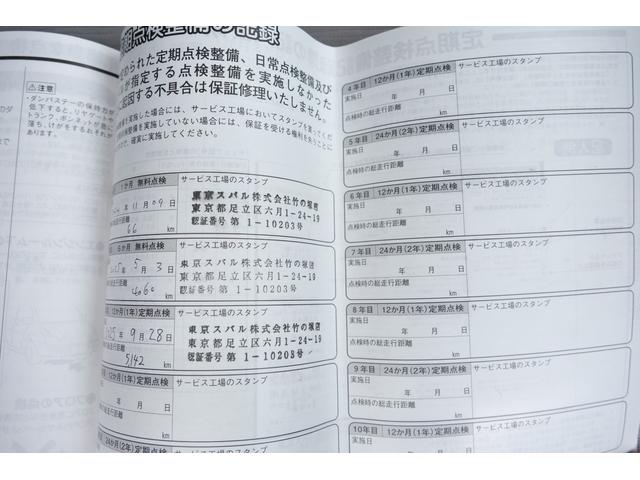 定期点検整備の記録
められた定期点検整備、日常点検整備及び
が指定する点検整備を実施しなかった
に起因する不具合は保証修理いたしません。
備を実施した場合には、サービス工場においてスタンプを
備を実施していない場合には、保証を受ける権利を失うことに
確実に実施してください。
注意
・ダンパステーの保持力が
低下すると、リヤゲート
トランク、ボンネ
落ち、けがをするおそれが
あります。
1か月 無料点検
サービス工場のスタンプ
年 11月 09日
66 km
東京スバル株式会社竹の塚店
東京都足立区六月1-24-19
認証番号 第 1-10203号
6か月 無料点検
サービス工場のスタンプ
年 5月 3日
4060 km
東京スバル株式会社竹の塚店
東京都足立区六月1-24-19
認証番号 第 1-10203号
12か月(1年)定期点検
サービス工場のスタンプ
年 9月 28日
走行距離
5142 km
東京スバル株式会社竹の塚店
東京都足立区六月1-24-19
認証番号 第 1-10203号
12か月(1年)定期点検
サービス工場のスタンプ
年 月 日
走行距離
km
24か月(2年)定期点検
サービス工場のスタンプ
定期点検整備
4年目 12か月(1年)定期点検
サービス工場のスタンプ
実施日 年 月 日
点検時の総走行距離
km
5年目 24か月(2年)定期点検
サービス工場のスタンプ
実施日 年 月 日
点検時の総走行距離
km
6年目 12か月(1年)定期点検
サービス工場のスタンプ
実施日 年 月 日
点検時の総走行距離
km
7年目 24か月(2年)定期点検
サービス工場のスタンプ
実施日 年 月 日
点検時の総走行距離
km
8年目 12か月(1年)定期点検
サービス工場のスタンプ
実施日 年 月 日
点検時の総走行距離
km
9年目 24か月(2年)定期点検
サービス工場のスタンプ
実施日 年 月 日
点検時の総走行距離
km
10年目 12か月(1年)定期点検
サービス工場のスタンプ
実施日 年 月 日